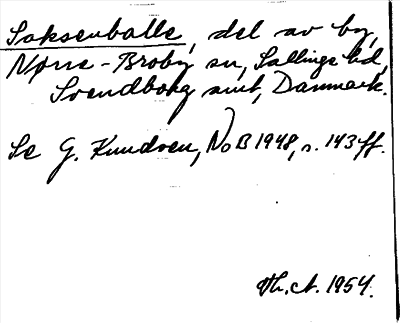 Saksenballe, del av by,
Nørre-Broby sn, Sallinge hd,
Svendborg amt, Danmark.
Se G. Knudsen, NoB 1948, s. 143ff.
Th. A. 1954.